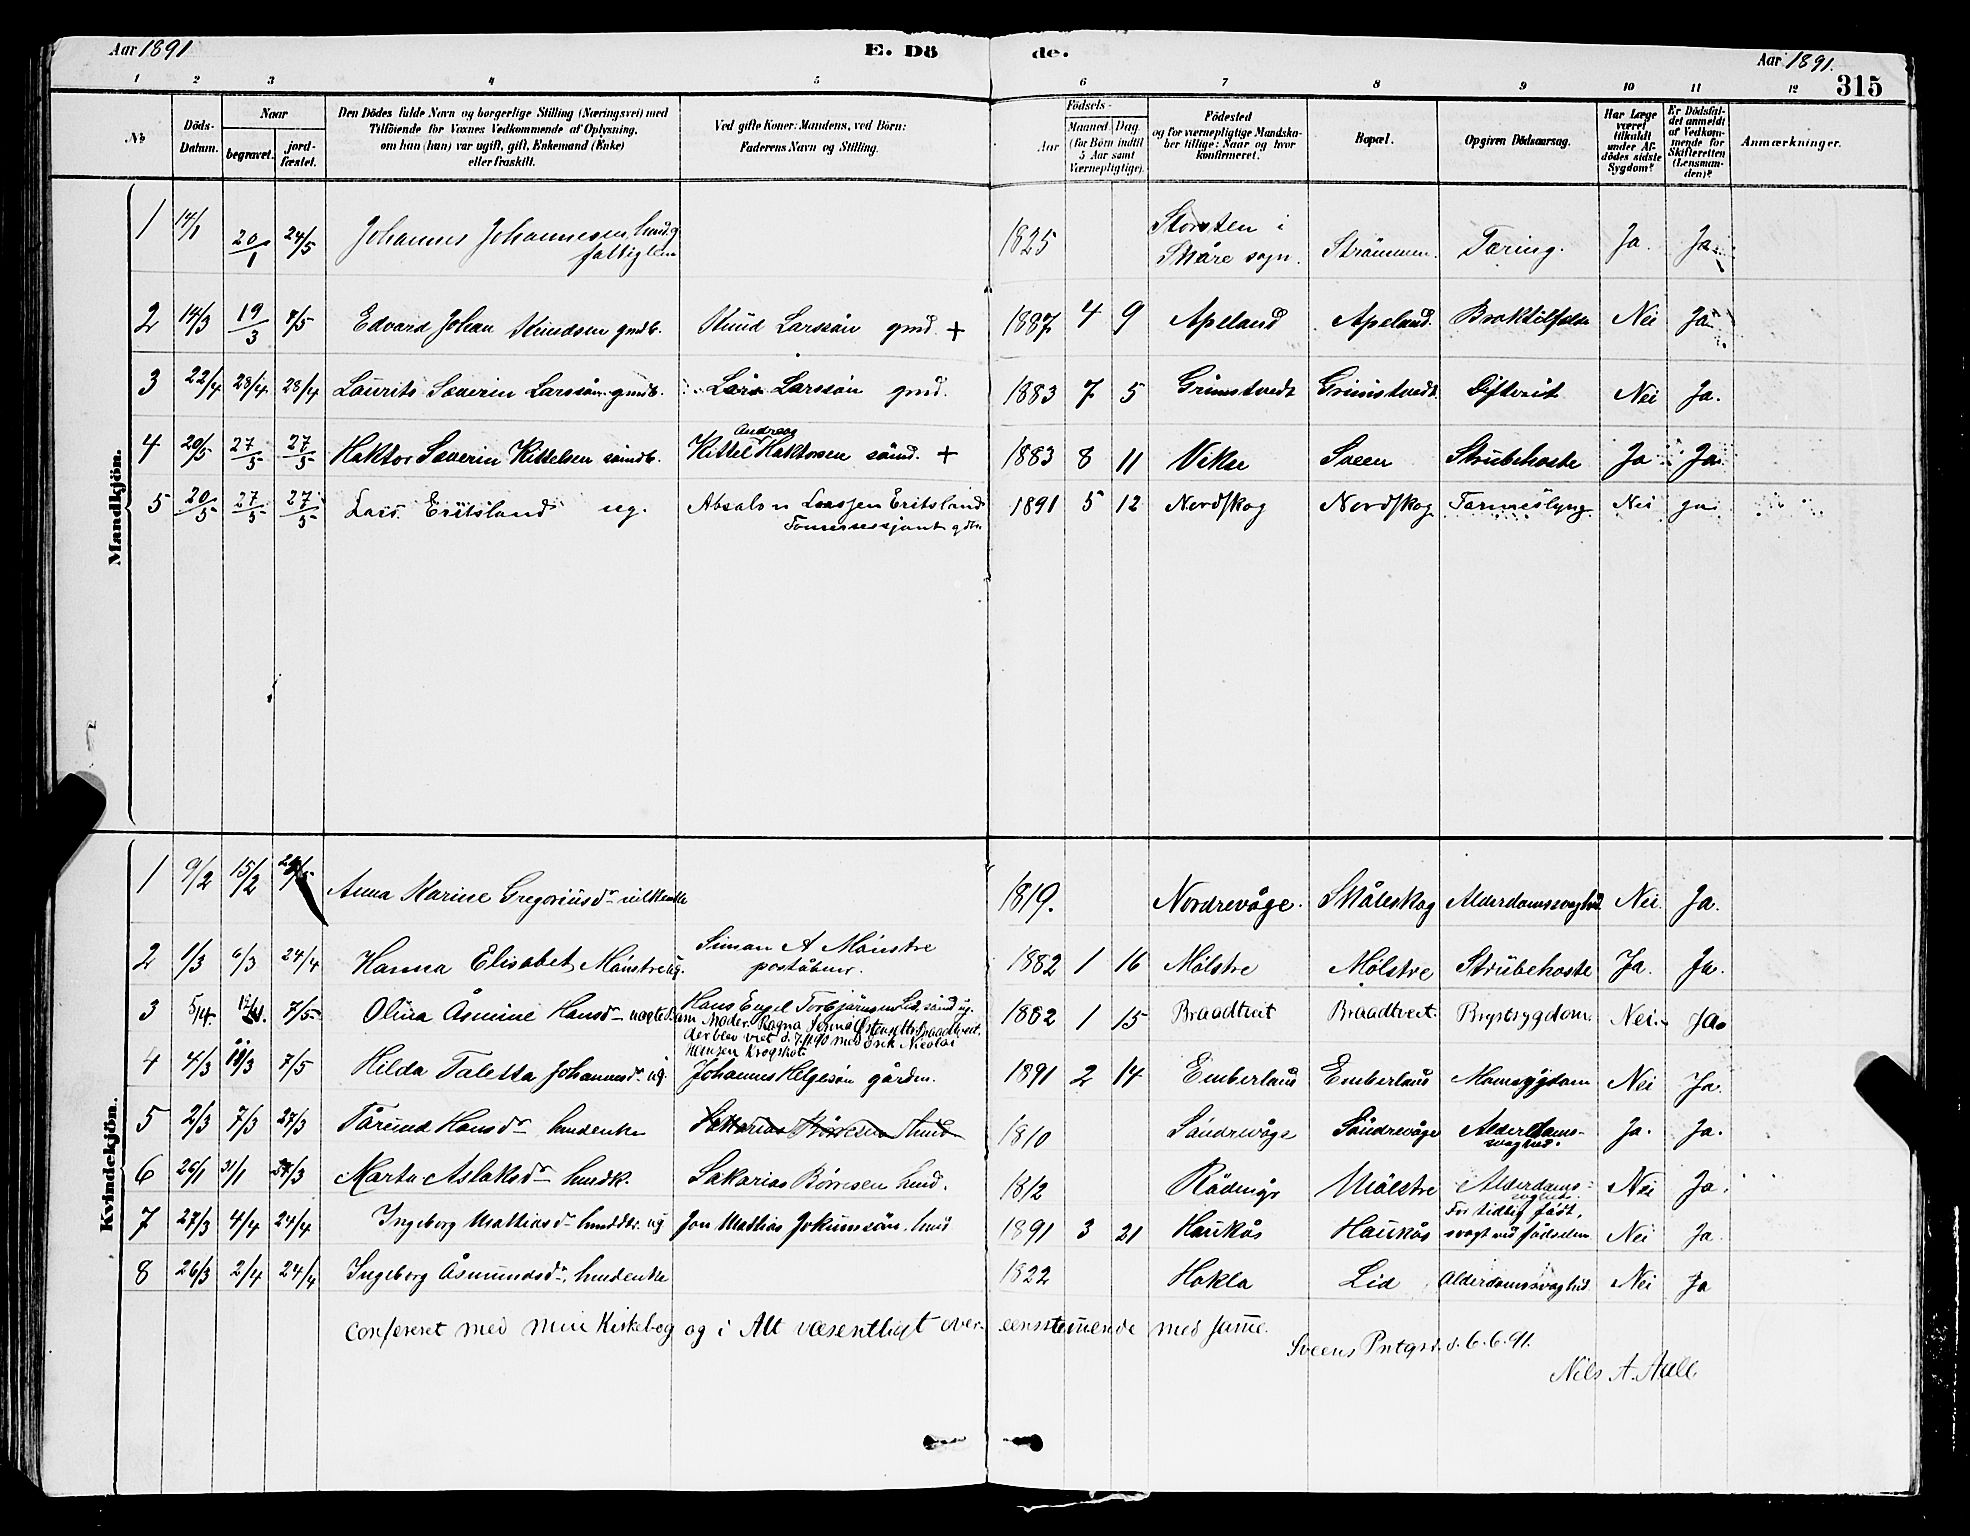 Aar 1891 E. Dö de. Aar 1891.
315
1 2 3 4 5 6 7 8 9 10 11 12
No Döds-Datum. Naar begravet. jordfæstet. Den Dödes fulde Navn og borgerlige Stilling (Næringsvei) med Tilföiende for Voxnes Vedkommende af Oplysning, om han (hun) var ugift, gift, Enkemand (Enke) eller fraskilt. Ved gifte Koner: Mandens, ved Börn: Faderens Navn og Stilling. Födsels- Aar Maaned Dag (for Börn indtil 5 Aar samt Værnepligtige). Födested og for værnepligtige Mandskaber tillige: Naar og hvor konfirmeret. Bopæl. Opgiven Dödsaarsag. Har Læge været tilkaldt under Afdödes sidste Sygdom? Er Dödsfaldet anmeldt af Vedkommende for Skifteretten (Lensmanden)? Anmærkninger.
Mandkjön.
1 14/1 20/1 24/5 Johannes Johannesen husm. 1825 Storsten i Skåre sogn. Strömmen. Tæring. Ja. Ja.
2 14/3 19/3 7/5 Edvard Johan Knudsen gmdb. Knud Larssön gmd. + 1887 4 9 Apeland Apeland. Nei Ja.
3 22/4 28/4 28/4 Laurits Severin Larssön gmdb. Lars Larssön gmd. 1883 7 5 Grimstvedt Grimstvedt. Difterit Nei Ja.
4 20/5 27/5 27/5 Haktor Severin Kittelsen Kittel Andreas Haktorsen + 1883 8 11 Vikse Sveen Strubehoste Ja Ja.
5 20/5 27/5 27/5 Lars Eritsland ug. Absalon Larssen Eritsland 1891 5 12 Nordskog Nordskog Tarmeslyng. Nei ja
Kvindekjön.
1 9/2 15/2 Anna Karine Gregoriusdr 1819. Nordrevåge. Skåleskog Alderdomssvaghed Nei Ja.
2 1/3 6/3 24/4 Hanna Elisabet Mönstre ug. Simon A Mönstre poståbner. 1882 1 16 Mölstre Mölstre Strubehoste Ja. Ja.
3 5/4 7/5 Olina Åsmine Hansdr uægte Hans Engel Torbjörnsen Lid, Moder: Ragna der blev viet d. med Erik Nicolai Hansen 1882 1 15 Braadtveit Braadtveit. Brystsygdom. Nei. Ja.
4 4/3 7/5 Hilda Taletta Johannesdr ug. Johannes Helgesön gårdm. 1891 2 14 Emberland Emberland Nei Ja.
5 2/3 7/3 27/3 Tårund Hansdr husmenke Sakarias Börresen husm 1810 Söndrevåge Söndrevåge Alderdomssvaghed. Ja. Ja.
6 26/1 31/1 Marta Aslaksdr husmk. Sakarias Börresen husm. 1812 Mölstre Alderdomssvaghed. Nei Ja.
7 27/3 4/4 24/4 Ingeborg Mathiasdr ug Jon Mathias Jokumsön. husm 1891 3 21 Haukås Haukås For tidlig födt, svagt ved födselen Nei Ja.
8 26/3 2/4 24/4 Ingeborg Åsmundsdr. husmenke 1822 Hakla Lid Alderdomssvaghed. Nei Ja
Confereret med min Kirkebog og i Alt væsentligt overeensstemmende med samme.
Sveens Pretgrd. d. 6.6.91.
Nils A. Aall